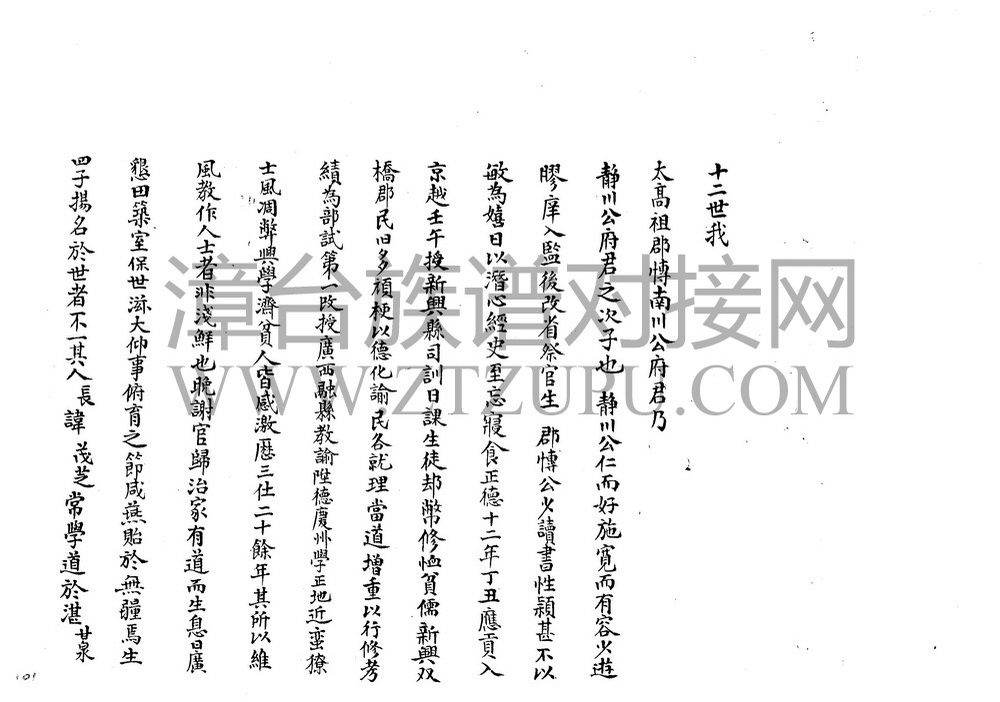 十二世我
太高祖郡愽南川公府君乃
靜川公府君之次子也 靜川公仁而好施寬而有容少遊
膠庠入監後改省祭官生 郡愽公少讀書性穎甚不以
敏為嬉日以潛心經史至忘寢食正德十二年丁丑應貢入
京越壬午授新興縣司訓日課生徒却幣修恤貧儒新興双
橋郡民旧多頑梗以德化諭民各就理當道增重以行修考
績為部試第一改授廣西融縣教諭陞德慶州學正地近蛮獠
士風凋弊興學濟貧人皆感激歷三仕二十餘年其所以維
風教作人士者非淺鮮也晚謝官歸治家有道而生息日廣
懇田築室保世滋大仰事俯育之節咸燕貽於無疆焉生
四子揚名於世者不一其人長諱茂芝常學道於湛甘泉
漳台族谱对接网
WWW.ZTZUPU.COM
101